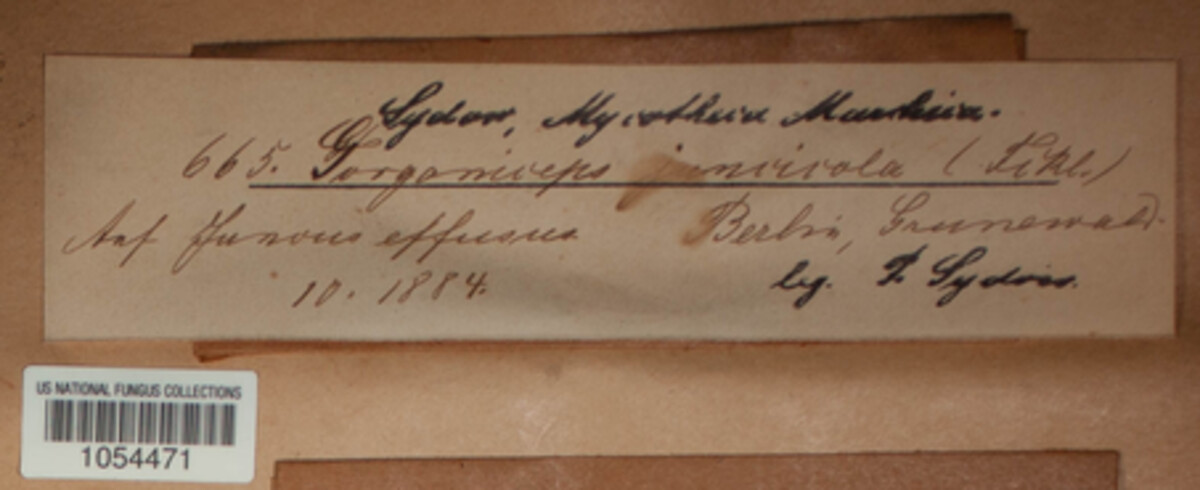 Sydow, Mycotheca Marchica.
665. Gorgoniceps juncicola (Fckl.)
Auf Juncus effusus Berlin, Grunewald.
10. 1884. leg. P. Sydow.
US NATIONAL FUNGUS COLLECTIONS
1054471